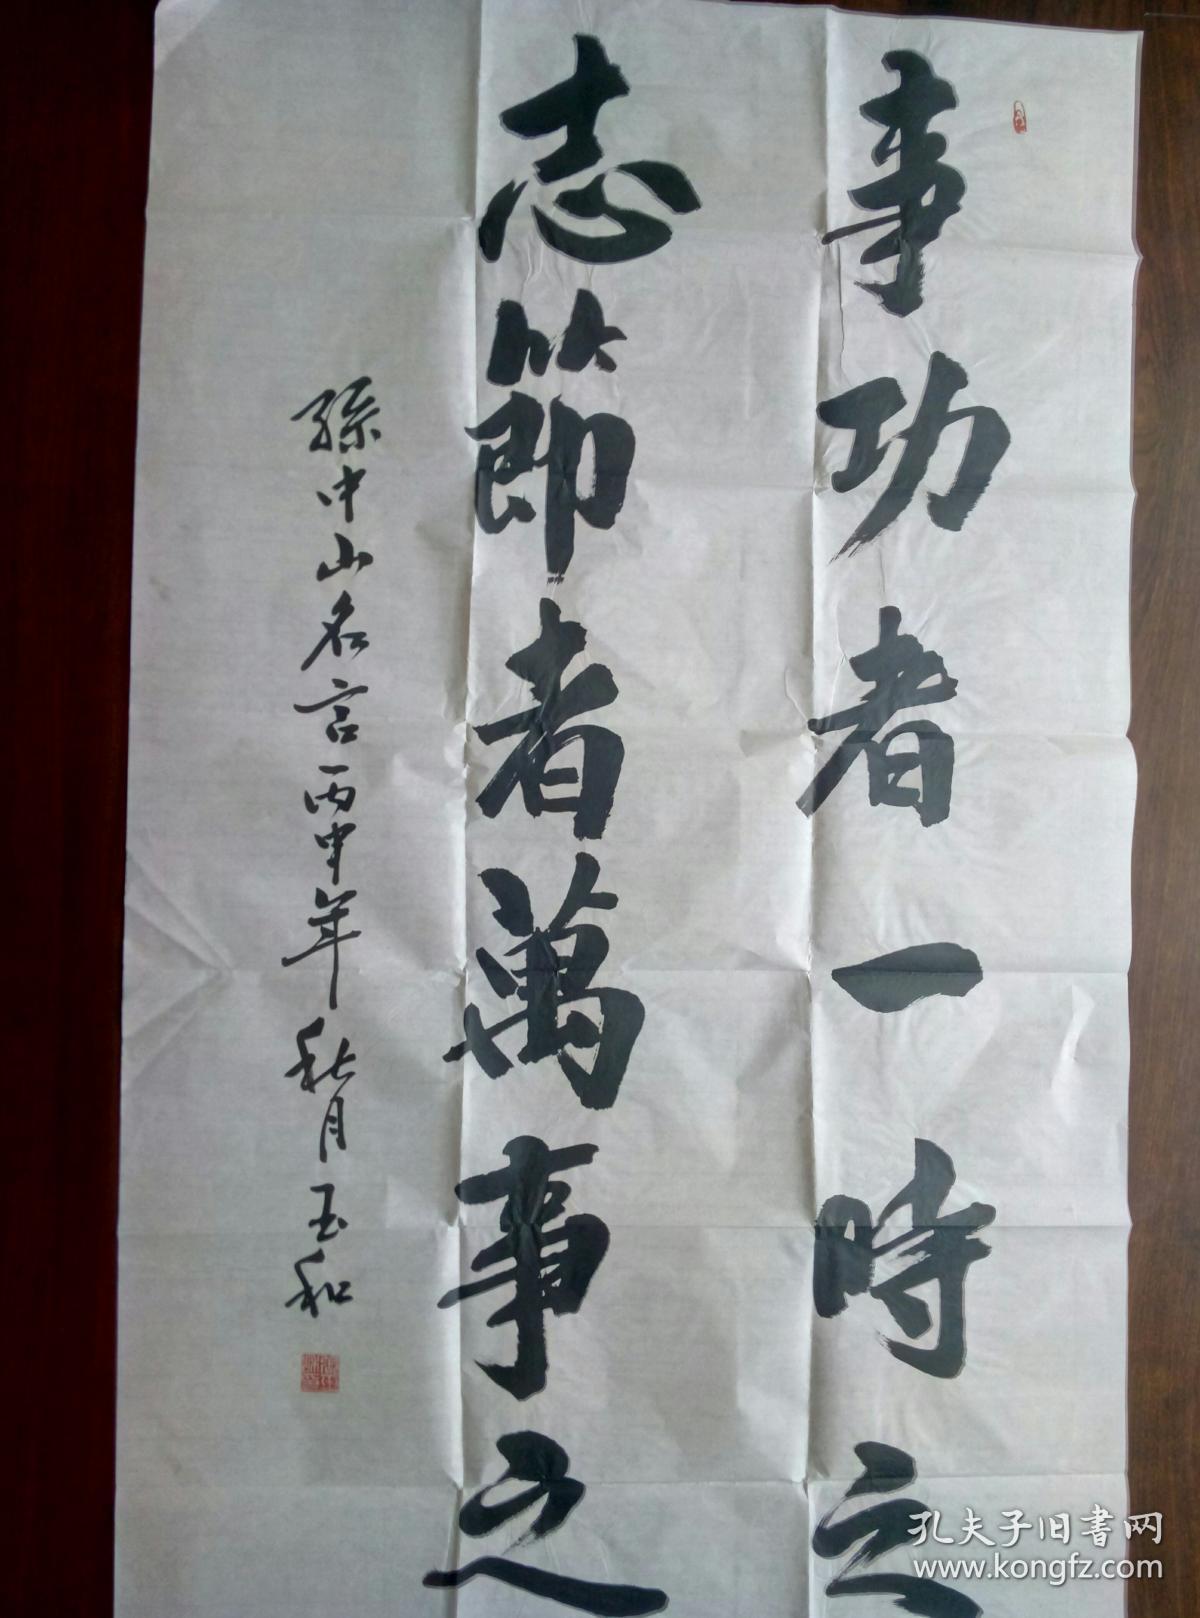 事功者一時之
志節者萬事之
孫中山名言丙申年秋月玉和
孔夫子旧書网
www.kongfz.com